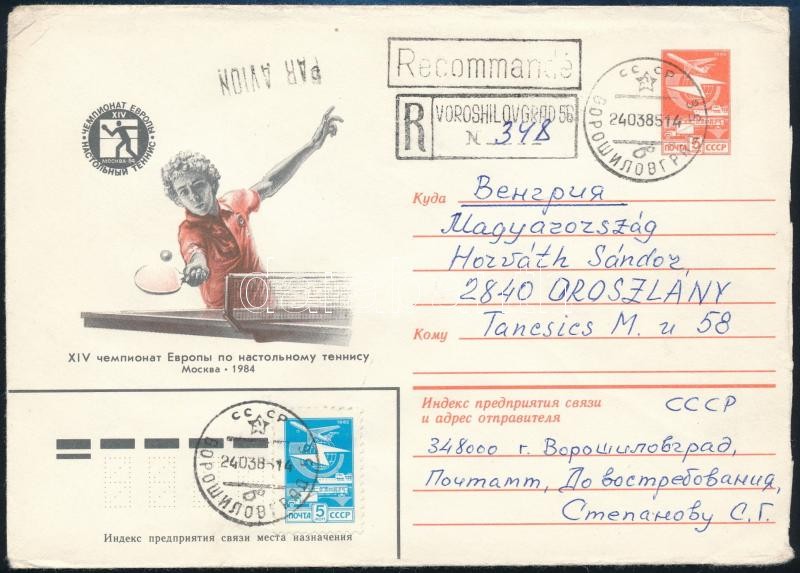 PAR AVION
Recommandé
R VOROSHILOVGRAD 56
N 348
СССР
ВОРОШИЛОВГРАД
24038514
1982
ПОЧТА 5 СССР
ЧЕМПИОНАТ ЕВРОПЫ
XIV
МОСКВА 84
НАСТОЛЬНЫЙ ТЕННИС
Куда Венгрия
Magyarország
Horváth Sándor
2840 OROSZLÁNY
Кому Tancsics M. u 58
XIV чемпионат Европы по настольному теннису
Москва · 1984
Индекс предприятия связи
и адрес отправителя
СССР
348000 г. Ворошиловград,
Почтамт, До востребования,
Степанову С.Г.
СССР
ВОРОШИЛОВГРАД
24038514
1982
ПОЧТА 5 СССР
Индекс предприятия связи места назначения